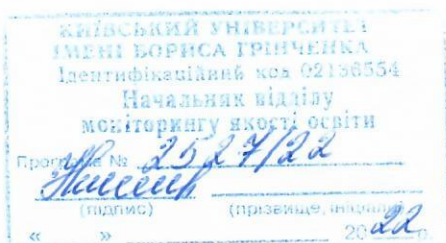 КИЇВСЬКИЙ УНІВЕРСИТЕТ
ІМЕНІ БОРИСА ГРІНЧЕНКА
Ідентифікаційний код 02136554
Начальник відділу
моніторингу якості освіти
Програма № 2527/22
(підпис) (прізвище, ініціали)
« » 2022 р.